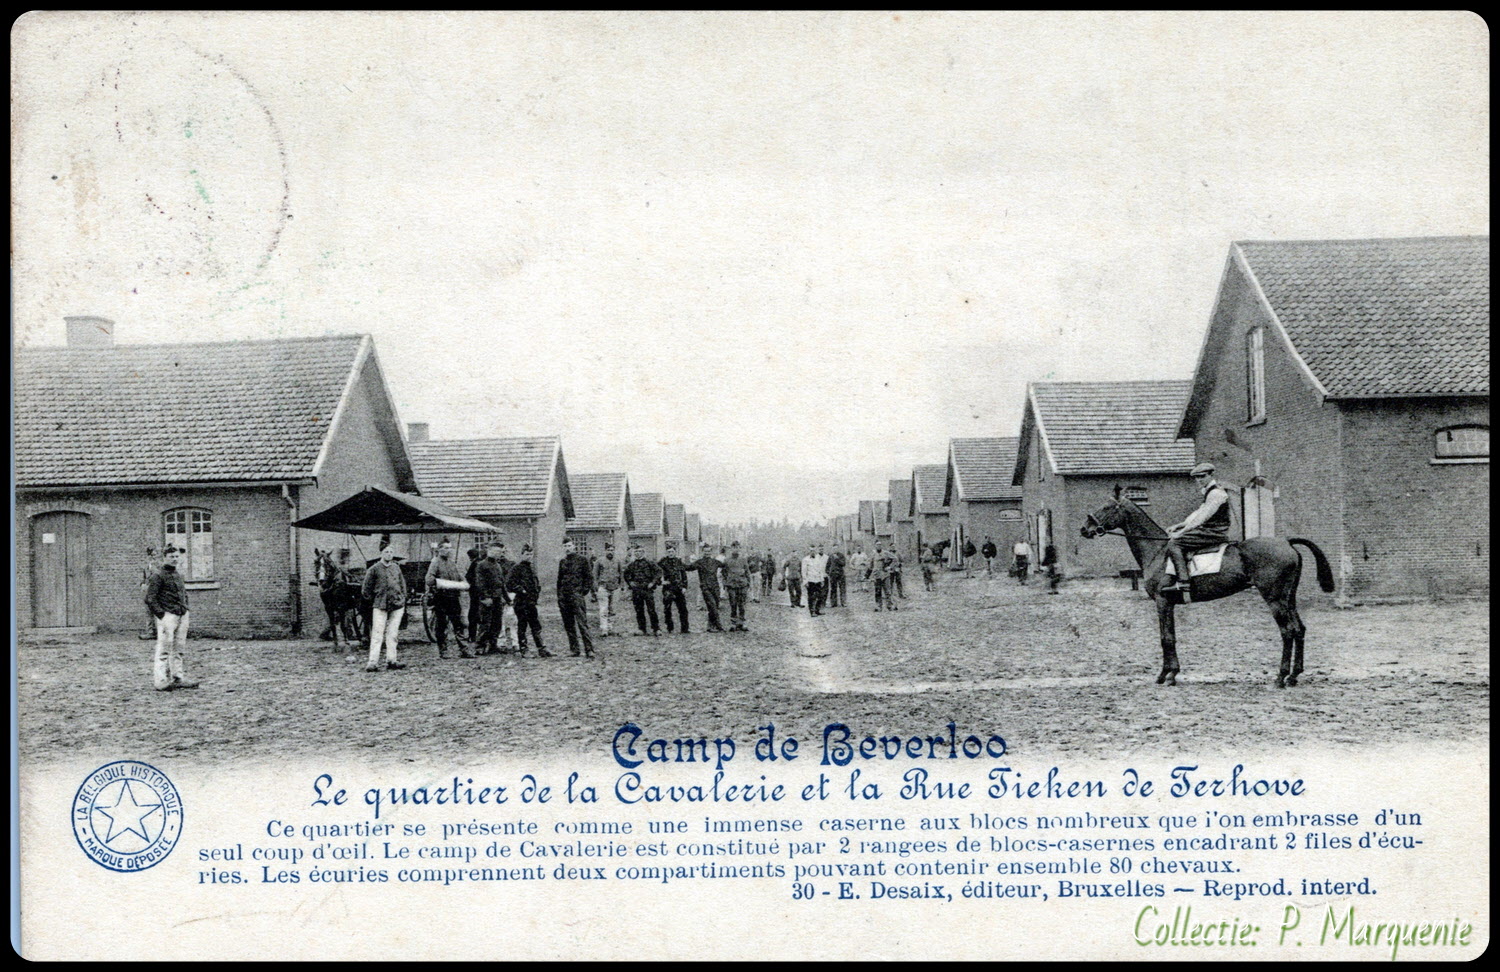 Camp de Beverloo
Le quartier de la Cavalerie et la Rue Tieken de Terhove
Ce quartier se présente comme une immense caserne aux blocs nombreux que l'on embrasse d'un
seul coup d'œil. Le camp de Cavalerie est constitué par 2 rangees de blocs-casernes encadrant 2 files d'écu-
ries. Les écuries comprennent deux compartiments pouvant contenir ensemble 80 chevaux.
30 - E. Desaix, éditeur, Bruxelles — Reprod. interd.
LA BELGIQUE HISTORIQUE
- MARQUE DÉPOSÉE -
Collectie: P. Marquenie